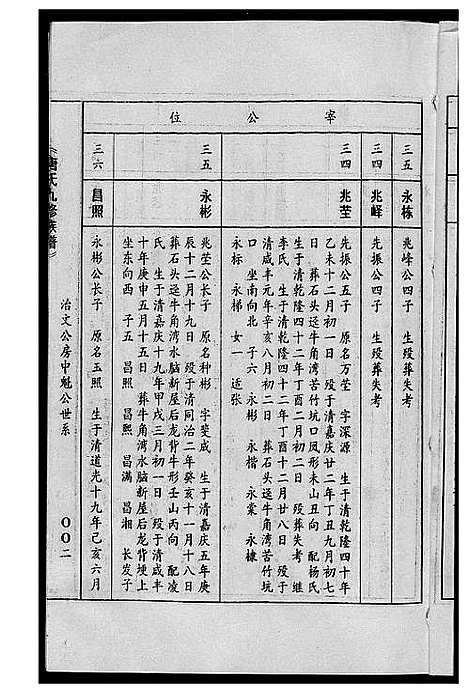 宰公位
三五
永栋
兆峰公四子 生殁葬失考
三四
兆峄
先振公四子 生殁葬失考
三四
兆莹
先振公五子 原名万莹 字深源 生于清乾隆四十年
乙未十二月初一日 殁于清嘉庆廿二年丁丑九月初七
日 葬石头迳牛角湾苦竹坑口凤形未山丑向 配杨氏
生于清乾隆四十二年丁酉二月初二日 殁葬失考 继
李氏 生于清乾隆四十二年丁酉十二月廿八日 殁于
清咸丰元年辛亥八月初二日 葬石头迳牛角湾苦竹坑
口 坐南向北 子六 永彬 永楷 永棠 永棣
永标 永梯 女一 适张
三五
永彬
兆莹公长子 原名种彬 字斐成 生于清嘉庆五年庚
辰十二月十九日 殁于清同治二年癸亥十一月十八日
葬石头迳牛角湾水脑新屋后龙背牛形壬山丙向 配凌
氏 生于清嘉庆十九年甲戌三月初一日 殁于清咸丰
十年庚申五月十五日 葬牛角湾水脑新屋后龙背埂上
坐东向西 子五 昌照 昌熙 昌满 昌湘 长发子
三六
昌照
永彬公长子 原名玉照 生于清道光十九年己亥六月
唐氏九修族谱
治文公房中魁公世系
〇〇二